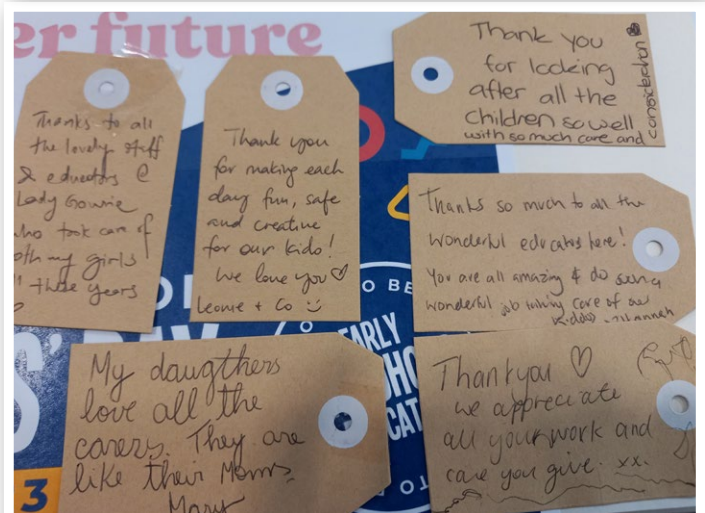 er future
Thanks to all
the lovely staff
& educators @
Lady Gowrie
who took care of
oth my girls
these years
Thank you
for making each
day fun, safe
and creative
for our kids!
We love you
Leonie + Co
Thank you
for looking
after all the
children so well
with so much care and
consideration
Thanks so much to all the
wonderful educators here!
You are all amazing & do such a
wonderful job taking care of our
kiddos
My daugthers
love all the
carers. They are
like their Moms.
Mary
Thankyou
we appreciate
all your work and
care you give. xx.
O BE
EARLY
HO
CAT
S'
3